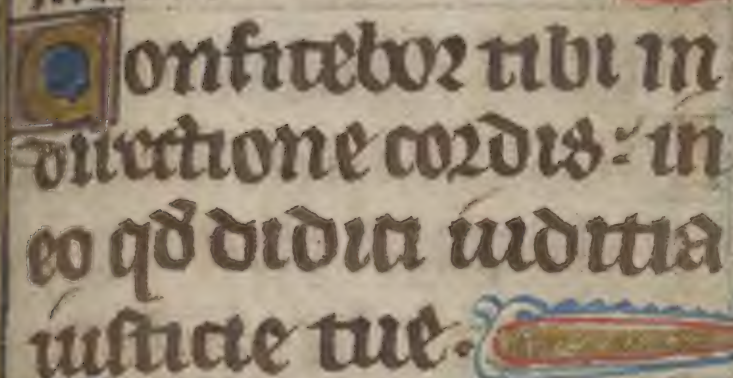 Confitebor tibi in
directione cordis: in
eo qd didici iudicia
iusticie tue.